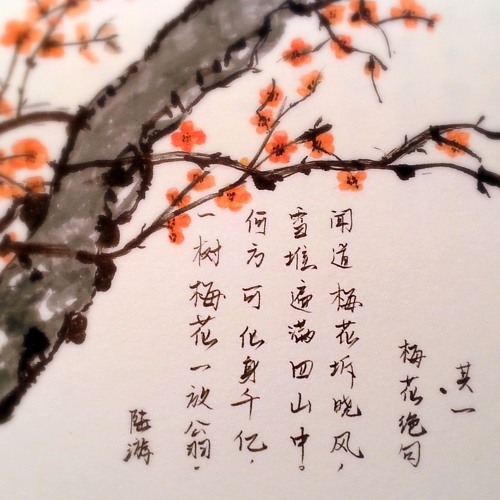 梅花绝句
·其一
闻道梅花坼晓风，
雪堆遍满四山中。
何方可化身千亿，
一树梅花一放翁。
陆游